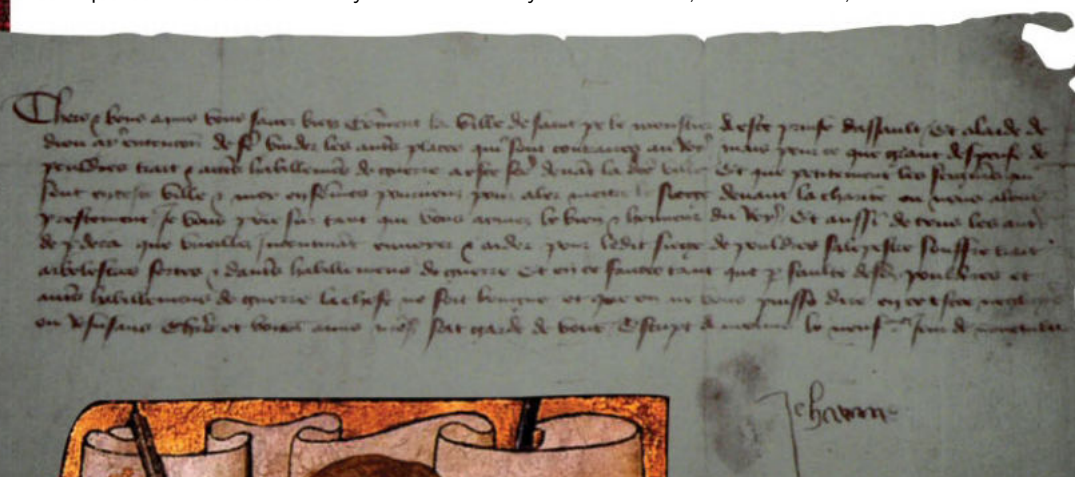 Chers et bons amis vous savez bien comment la ville de saint pere le moustier a este prinse dassault Et a laide de
dieu ay entencion de faire vuider les autres places qui sont contraires au Roy mais pour ce que grant despense de
pouldres trait et autres habillemens de guerre a este faicte devant la dicte ville Et que petitement les seigneurs qui
sont en ceste ville et moy en sommes pourveuz pour aler mectre le siege devant la charite ou nous alons
prestement Je vous prie sur tant que vous aymez le bien et honneur du Roy Et aussi de tous les autres
de par deca que vueillez incontinent envoyer et aider pour ledit siege de pouldres salepestre souffre trait
arbelestres fortes et dautres habillemens de guerre Et en ce faictes tant que par faulte desdictes pouldres et
autres habillemens de guerre la chose ne soit longue et que on ne vous puisse dire en ce estre
ou refusans Chiers et bons amis nostre sire soit garde de vous Escript a molins le neuf jour de novembre
Jehanne